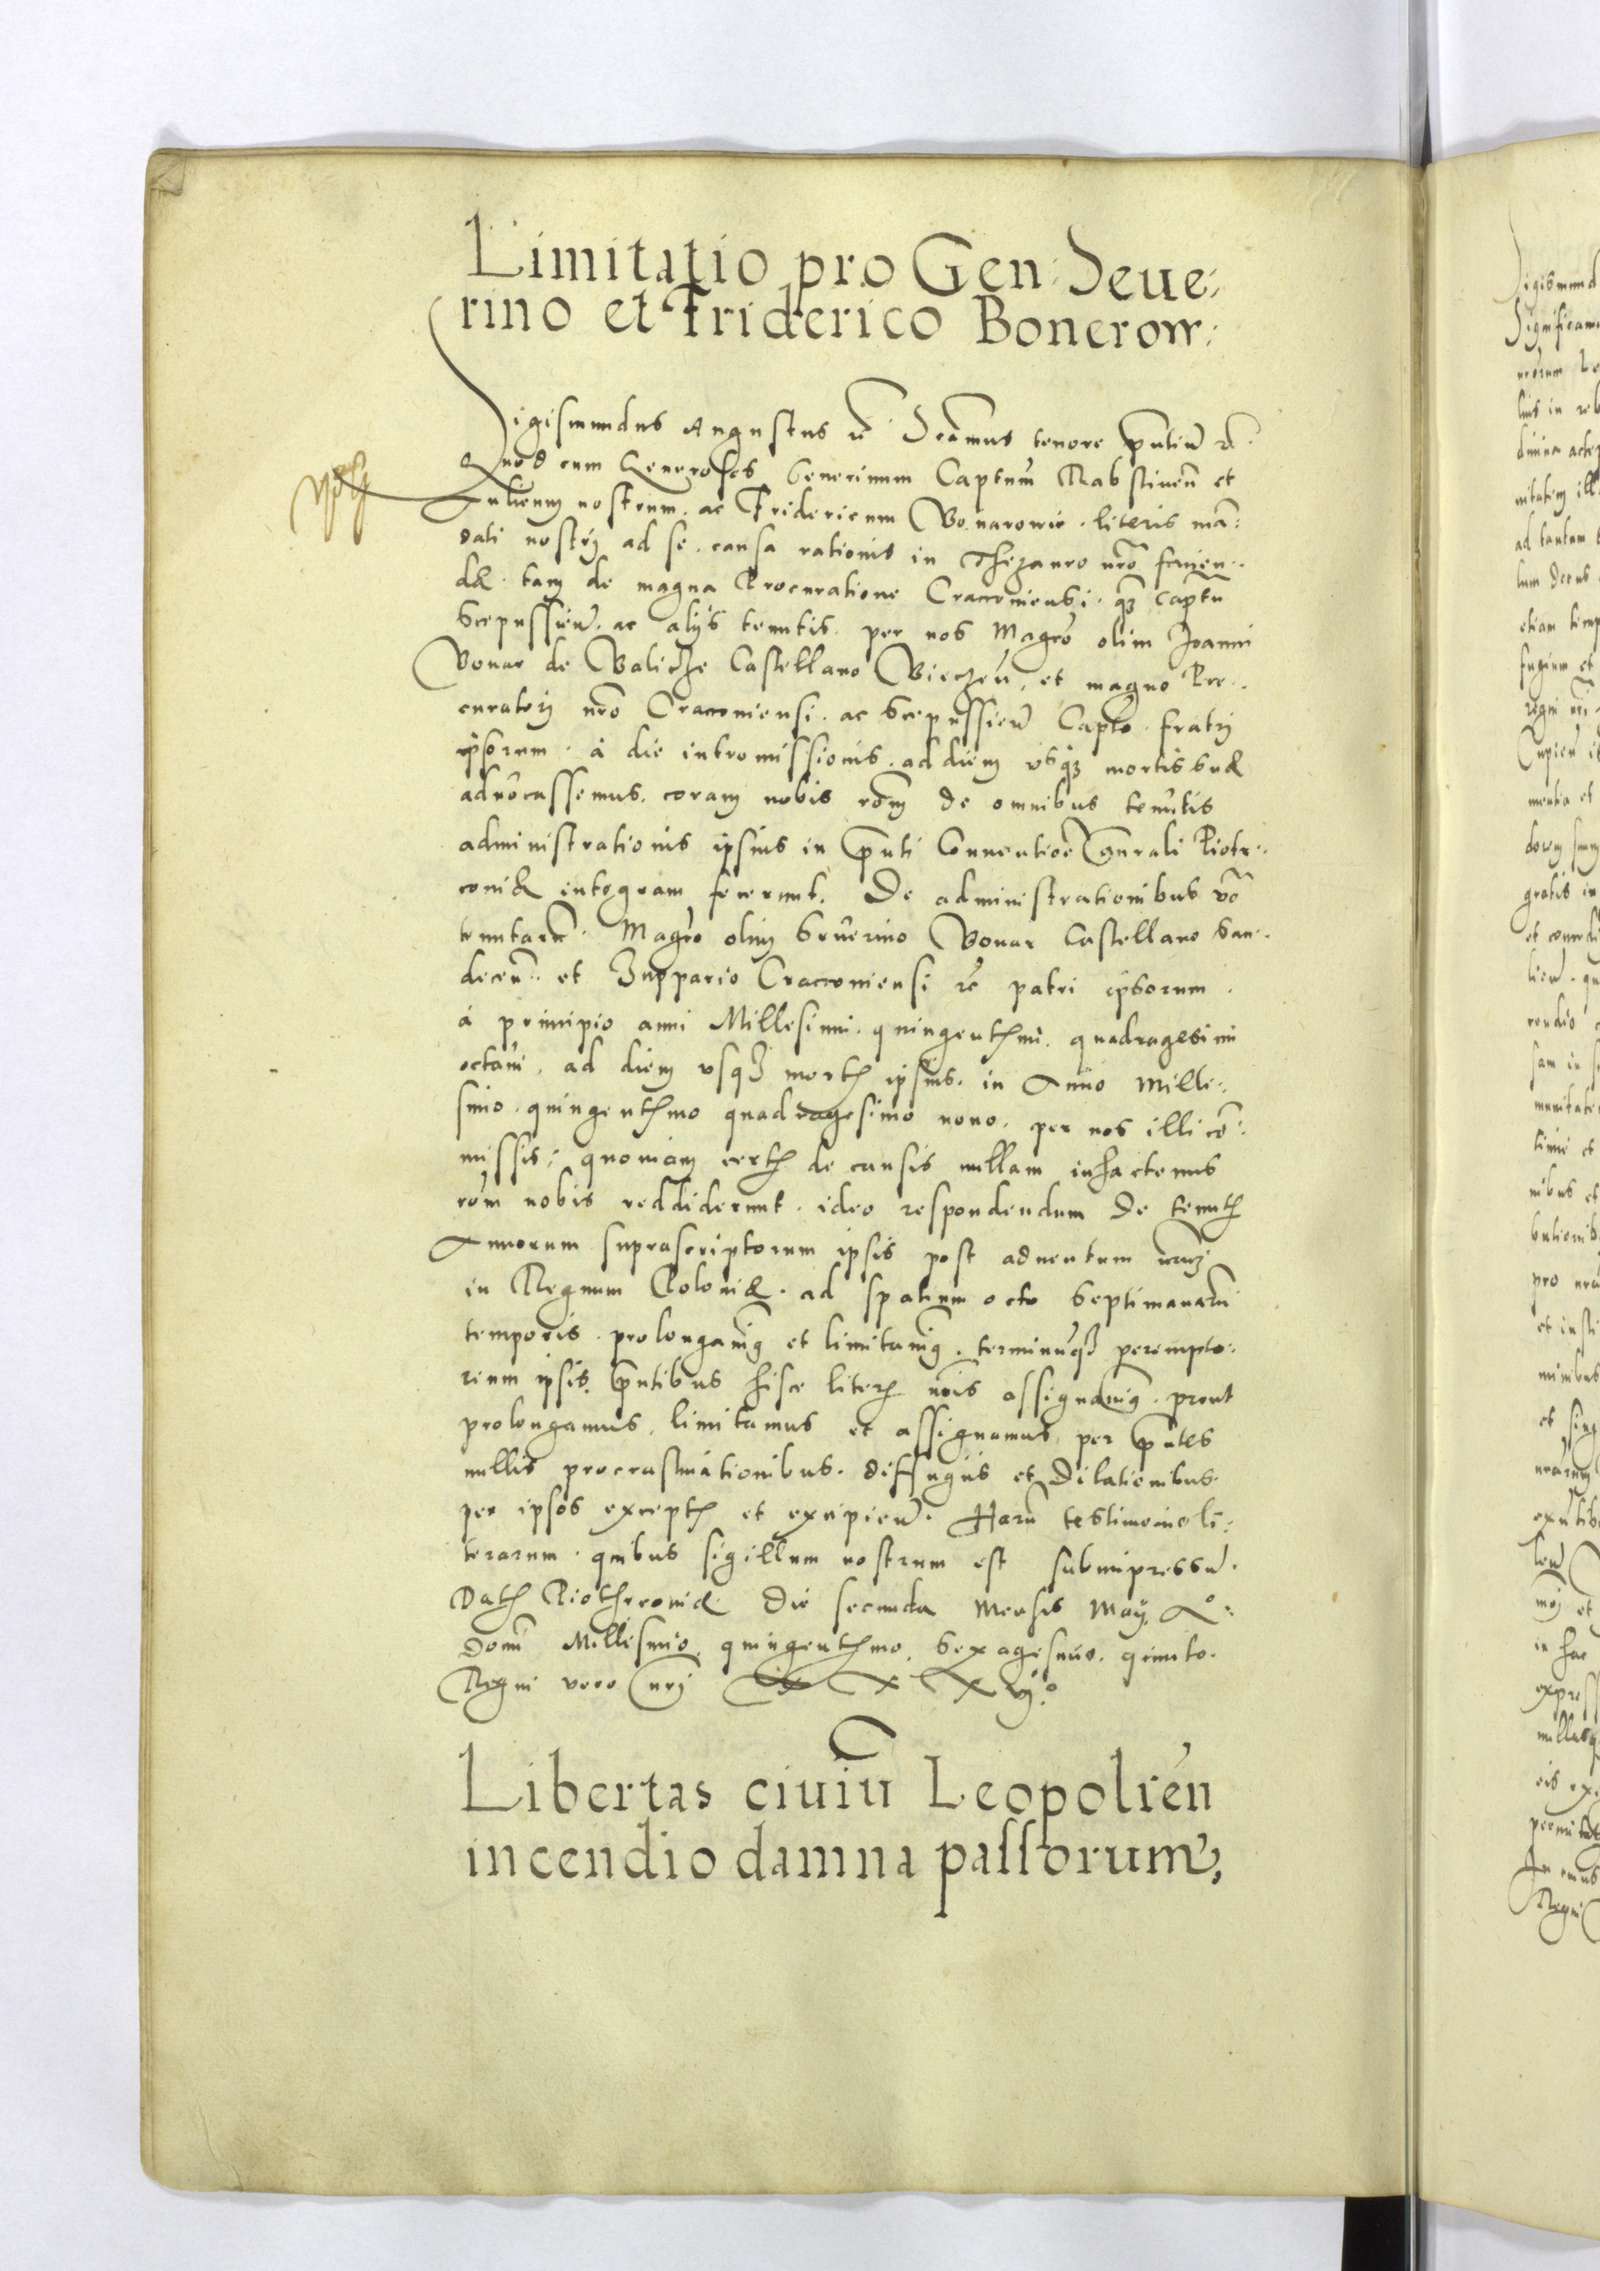 Limitatio pro Gen: Seue:
rino et Friderico Bonerow:
Sigismundus Augustus rc̃ Decãmus tenore pñtiũ rc̃.
Quod cum Generosos Seuerinum Captñm Rabstinen̄ et
Aulicum nostrum. ac Fridericum Bonarowie. literis man:
dati nostrj ad se. causa rationis in Thezauro nr̃o facien:
dæ. tam de magna Procuratione Cracouiensi. qm̃ Captũ
Scepussieñ. ac alijs tenutis. per nos Magco olim Joanni
Bonar de Balicze Castellano Biecżeñ, et magno Pro:
curatorj nr̃o Cracouiensi. ac Scepussieñ Capto. fratrj
ipsorum. à die intromissionis. ad diem vsq3 mortis suæ
aduocassemus. coram nobis rõm de omnibus tenutis
administrationis ipsius in pñti Conuentioe Gñrali Piotr:
couiæ integram fecerunt. De administrationibus võ
tenutarũ. Magco olim Seuerino Bonar Castellano San:
deceñ. et Zuppario Cracouiensi rc̃ patri ipsorum.
à principio anni Millesimi. quingentesimi. quadragesimi
octaui, ad diem vsq3 mortis ipsius. in Anno Mille:
simo. quingentesimo quadragesimo nono. per nos illi com̃:
missis: quoniam certis de causis nullam inhactenus
rõm nobis reddiderunt. ideo respondendum de tenutis
Annorum suprascriptorum ipsis post aduentum nr̃m
in Regnum Poloniæ. ad spatium octo Septimanarũ
temporis. prolongauimq et limitauimq. terminũq3 perempto:
rium ipsis pñtibus hisce literis nr̃is assignauimq. prout
prolongamus, limitamus et assignamus per pñtes
nullis procrastinationibus. diffugijs et dilationibus.
per ipsos exceptis et excipieñ. Harũ testimonio li:
terarum. quibus sigillum nostrum est subimpressũ.
Datis Piotrcouiæ die secunda mensis Maij. Aº:
Domĩ Millesimo, quingentesimo, Sexagesimo. quinto.
Regni vero nr̃j X X X vj.º
Libertas ciuiũ Leopolień
incendio damna passorum,